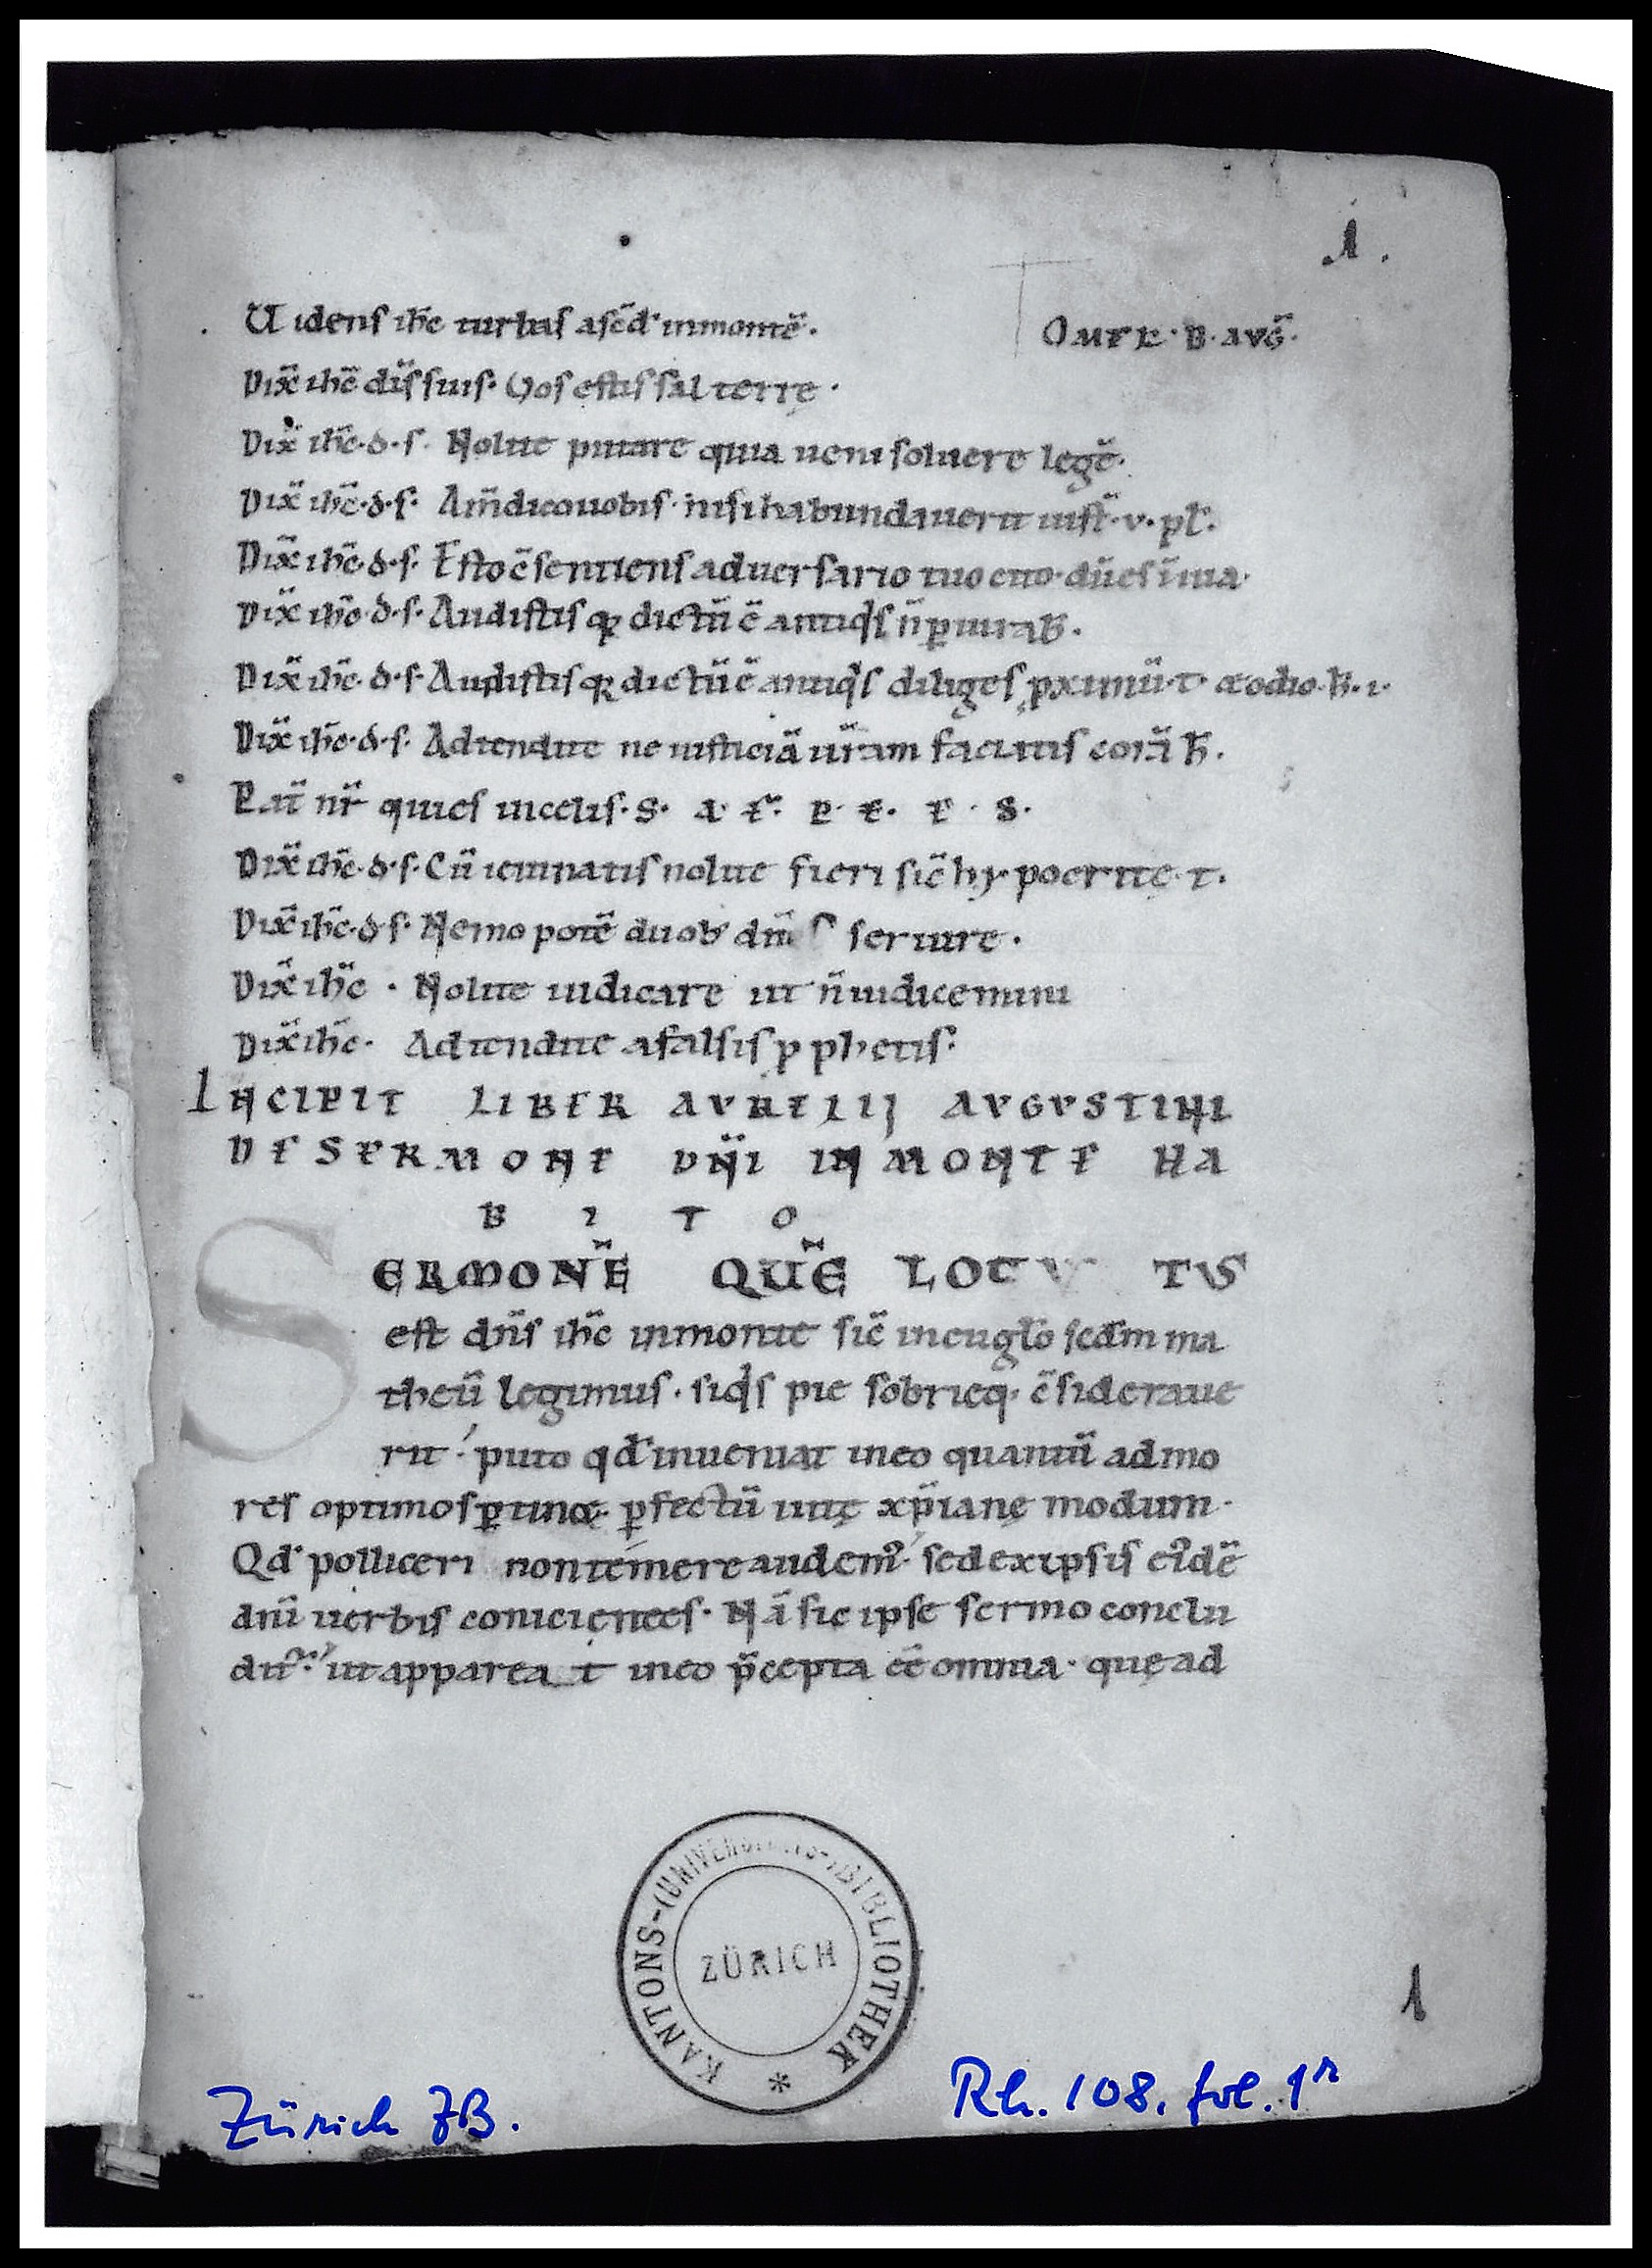 .1.
Uidens ih̄c turbas ascēd' inmontē.
OMEL· B· AVḠ·
Dix̄ ih̄c dīs suis· Vos estis sal terrę·
Dix̄ ih̄c·d·s· Nolite putare quia ueni soluere legē·
Dix̄ ih̄c·d·s· Am̄ dico uobis· nisi habundauerit iust̄·v·pl̄·
Dix̄ ih̄c·d·s· Esto c̄sentiens aduersario tuo cito· dū es
Dix̄ ih̄c·d·s· Audistis qꝛ dictū ē antiqͥs n̄ ꝑiurab̄·
Dix̄ ih̄c·d·s· Audistis qꝛ dictū ē antiqͥs diliges ꝓximū·t· & odio·h̄·i·
Dix̄ ih̄c·d·s· Adtendite ne iusticiā ur̄am faciatis corā h̄·
Pat̄ nr̄ qui es incelis·S· A·
Dix̄ ih̄c·d·s· Cū ieiunatis nolite fieri sic̄ hypocritę·t·
Dix̄ ih̄c·d·s· Nemo potē duob' dn̄is seruire·
Dix̄ ih̄c· Nolite iudicare ut n̄ iudicemini
Dix̄ ih̄c· Adtendite afalsis ꝓphetis·
INCIPIT LIBER AVRELII AVGVSTINI
DE SERMONE DN̄I IN MONTE HA
BITO
SERMONĒ QUĒ LOCVTVS
est dn̄s ih̄c inmonte sic̄ ineugl̄o scdm ma
theū legimus· siqͥs pie sobrieq· c̄siderauе
rit· puto qd' inueniat ineo quantū admo
res optimos ꝑtin&· ꝑfectū uitę xp̄ianę modum·
Qd' polliceri non temere audem'· sed exipsis eidē
dn̄i uerbis conicientes· Nā sic ipse sermo conclu
dit'· ut appareat ineo p̄cepta ēē omnia· quę ad
KANTONS-(UNIVERSITÄTS-)BIBLIOTHEK
ZÜRICH
*
1
Zürich ZB.
Rh. 108. fol. 1r